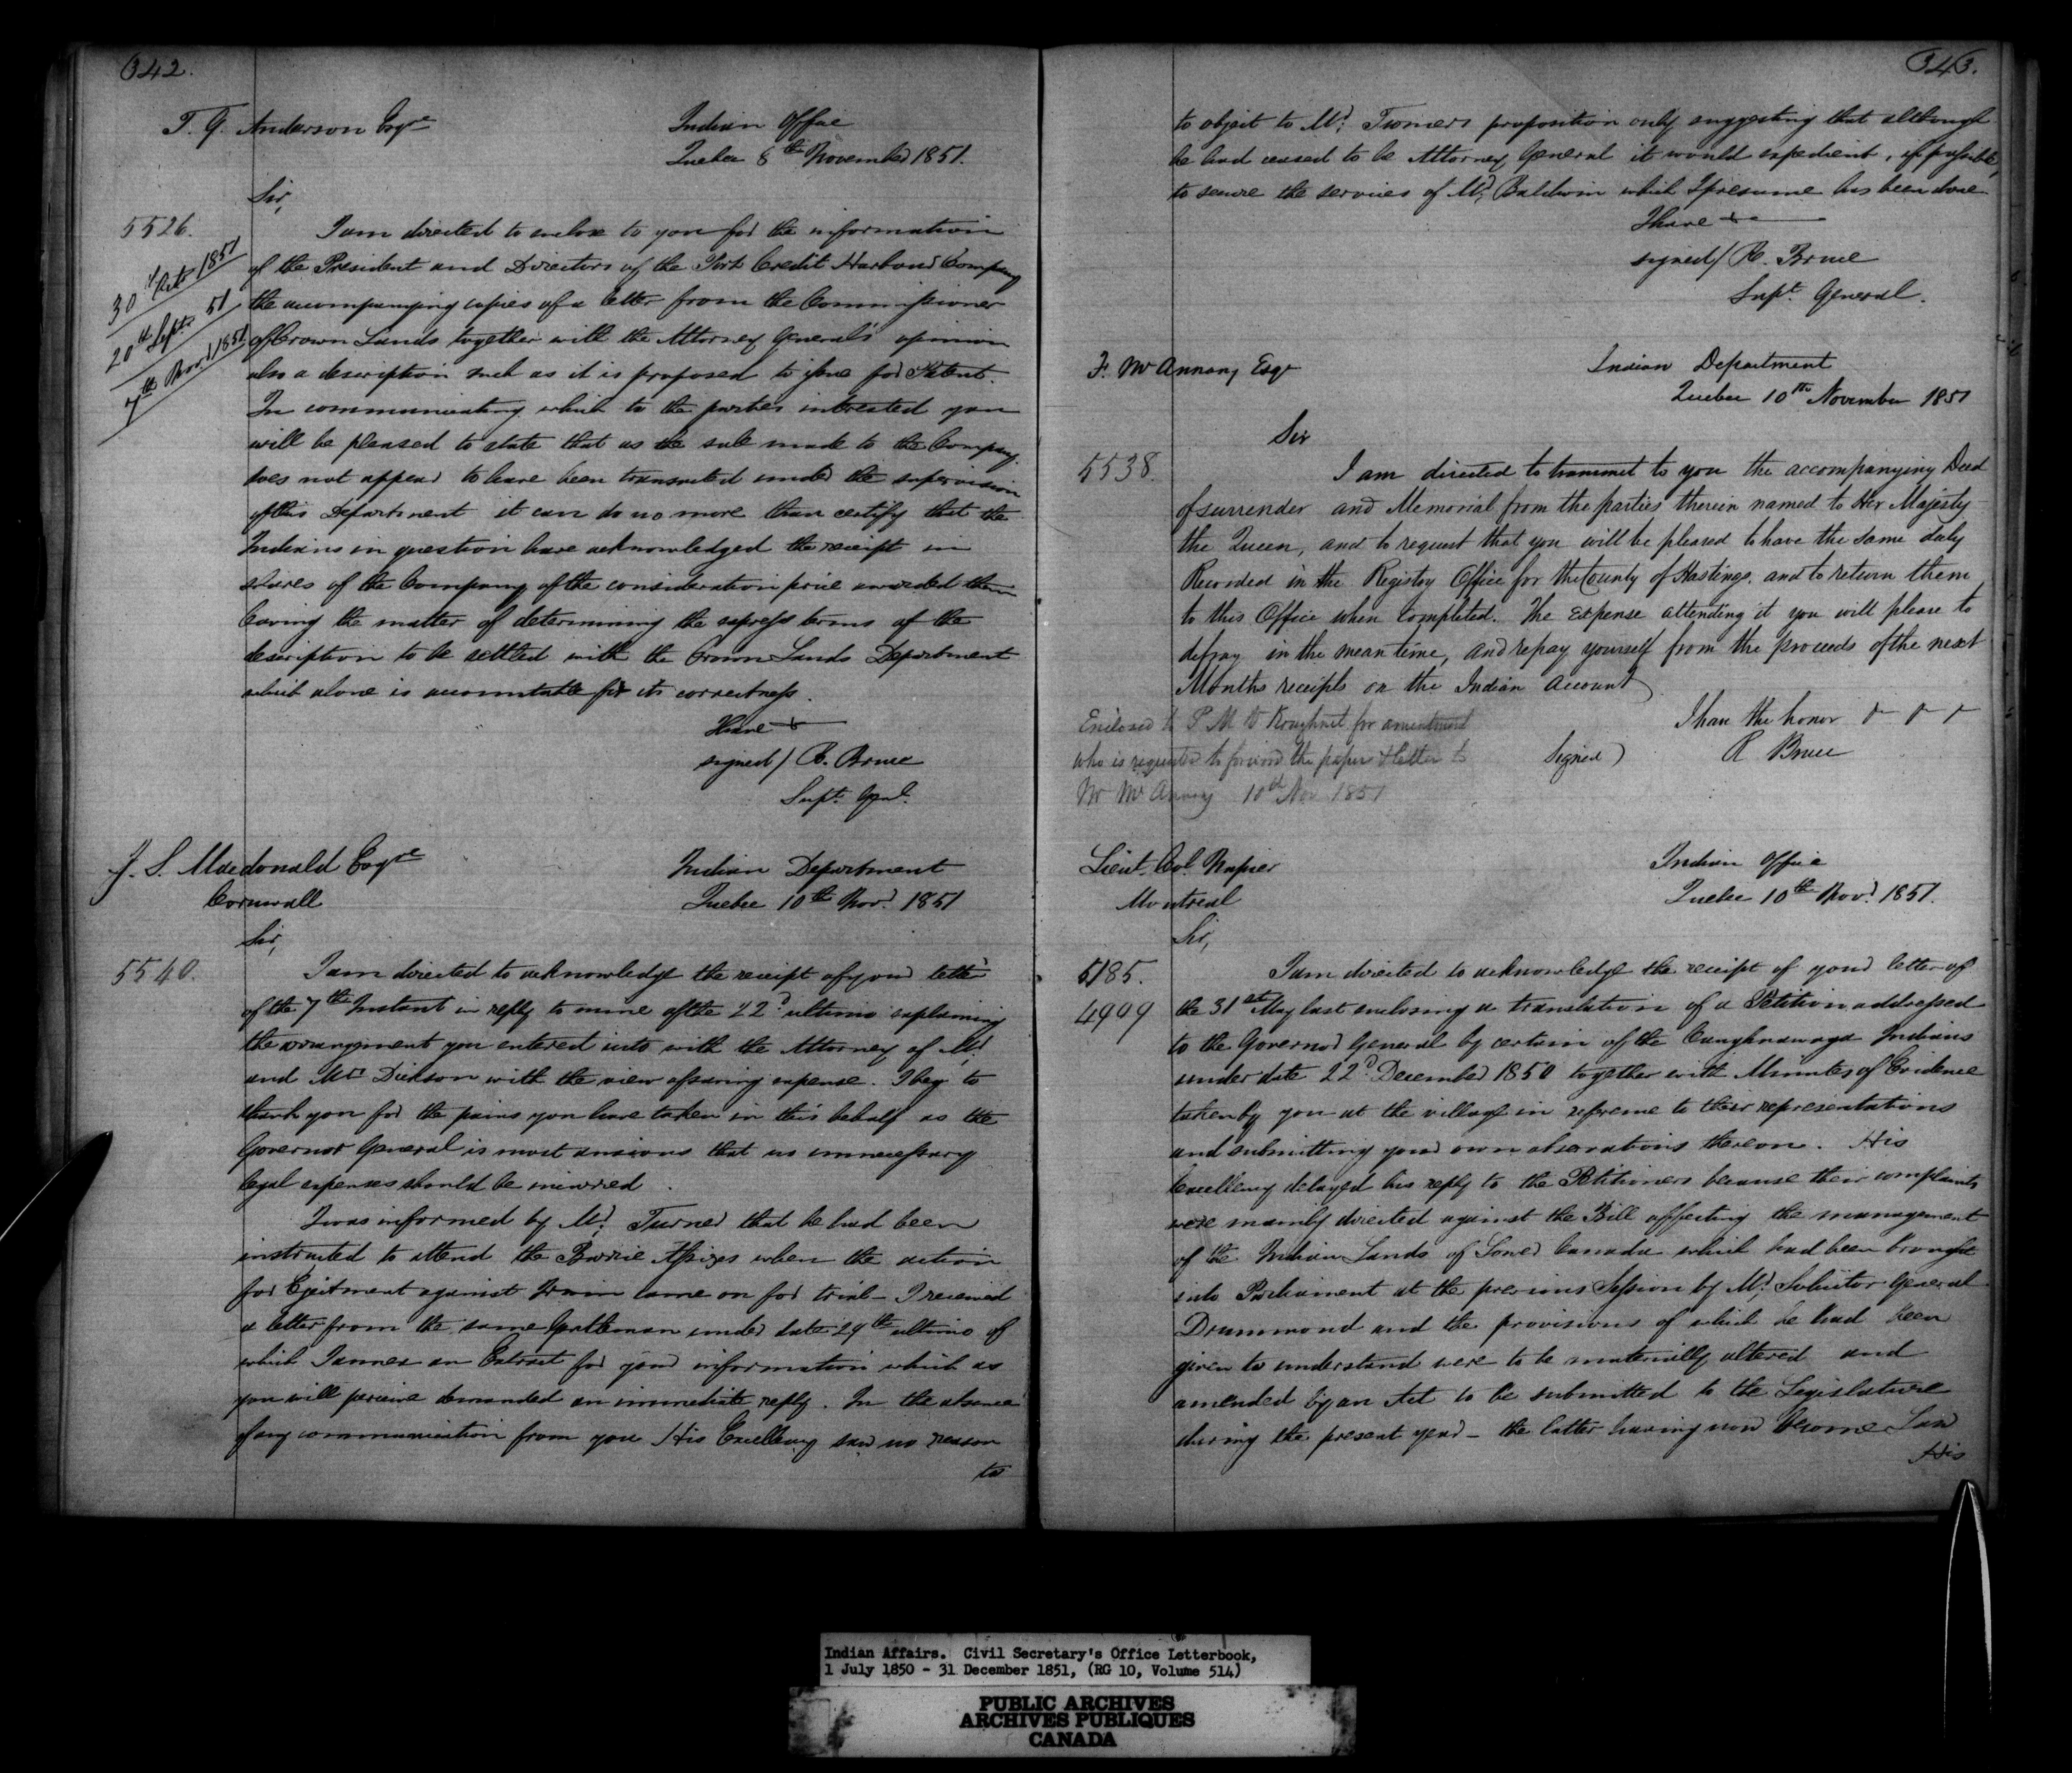 342.
T. G. Anderson Esqre
Indian Office
Quebec 8th November 1851.
Sir,
5526.
30th Octr 1851
20th Septr 51
7th Novr 1851
I am directed to enclose to you for the information
of the President and Directors of the Port Credit Harbour Company
the accompanying copies of a letter from the Commissioner
of Crown Lands together with the Attorney General's opinion
also a description such as it is proposed to issue for Patent.
In communicating which to the parties interested you
will be pleased to state that as the sale made to the Company
does not appear to have been transacted under the supervision
of this Department it can do no more than certify that the
Indians in question have acknowledged the receipt in
shares of the Company of the consideration price awarded them
leaving the matter of determining the express terms of the
description to be settled with the Crown Lands Department
which alone is accountable for its correctness.
I have &
signed/ R. Bruce
Supt. Genl.
J. S. Macdonald Esqre
Cornwall
Indian Department
Quebec 10th Novr. 1851
Sir,
5540.
I am directed to acknowledge the receipt of your letter
of the 7th Instant in reply to mine of the 22d ultimo explaining
the arrangement you entered into with the Attorney of Mr.
and Mrs Dickson with the view of saving expense. I beg to
thank you for the pains you have taken in this behalf as the
Governor General is most anxious that no unnecessary
legal expenses should be incurred.
I was informed by Mr. Turner that he had been
instructed to attend the Barrie Assizes when the action
for Ejectment against Irwin came on for trial - I received
a letter from the same Gentleman under date 29th ultimo of
which I annex an Extract for your information which as
you will perceive demanded an immediate reply. In the absence
of any communication from you His Excellency saw no reason
to
343.
to object to Mr. Turners proposition only suggesting that although
he had ceased to be Attorney General it would expedient, if possible,
to secure the services of Mr. Baldwin which I presume has been done
I have &c
signed/ R. Bruce
Supt. General.
F. McAnnany Esqr
Indian Department
Quebec 10th November 1851
Sir
5538.
I am directed to transmit to you the accompanying Deed
of surrender and Memorial from the parties therein named to Her Majesty
the Queen, and to request that you will be pleased to have the same duly
Recorded in the Registry Office for the County of Hastings, and to return them
to this Office when completed. The Expense attending it you will please to
defray in the mean time, and repay yourself from the proceeds of the next
Months receipts on the Indian Account
I have the honor
Signed) R Bruce
Enclosed to P M V Koughnet for amendment
who is requested to forward the papers & letter to
Mr McAnnany 10th Nov 1851
Lieut. Col. Napier
Montreal
Indian Office
Quebec 10th Novr. 1851.
Sir,
5185.
4999
I am directed to acknowledge the receipt of your letter of
the 31st May last enclosing a translation of a Petition addressed
to the Governor General by certain of the Caughnawaga Indians
under date 22d December 1850 together with Minutes of Evidence
taken by you at the village in reference to their representations
and submitting your own observations thereon. His
Excellency delayed his reply to the Petitioners because their complaints
were mainly directed against the Bill affecting the management
of the Indian Lands of Lower Canada which had been brought
into Parliament at the previous Session by Mr. Solicitor General
Drummond and the provisions of which he had been
given to understand were to be materially altered and
amended by an Act to be submitted to the Legislature
during the present year - the latter having now become Law
His
Indian Affairs. Civil Secretary's Office Letterbook,
1 July 1850 - 31 December 1851, (RG 10, Volume 514)
PUBLIC ARCHIVES
ARCHIVES PUBLIQUES
CANADA